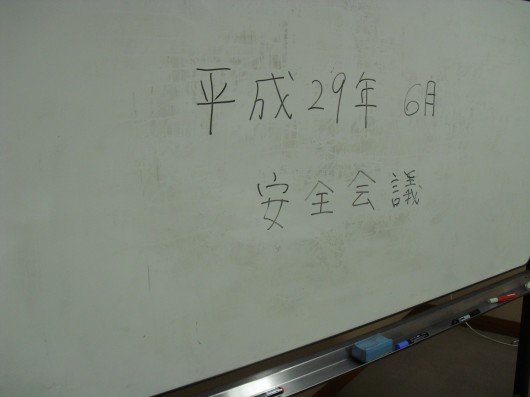 平成29年 6月
安全会議